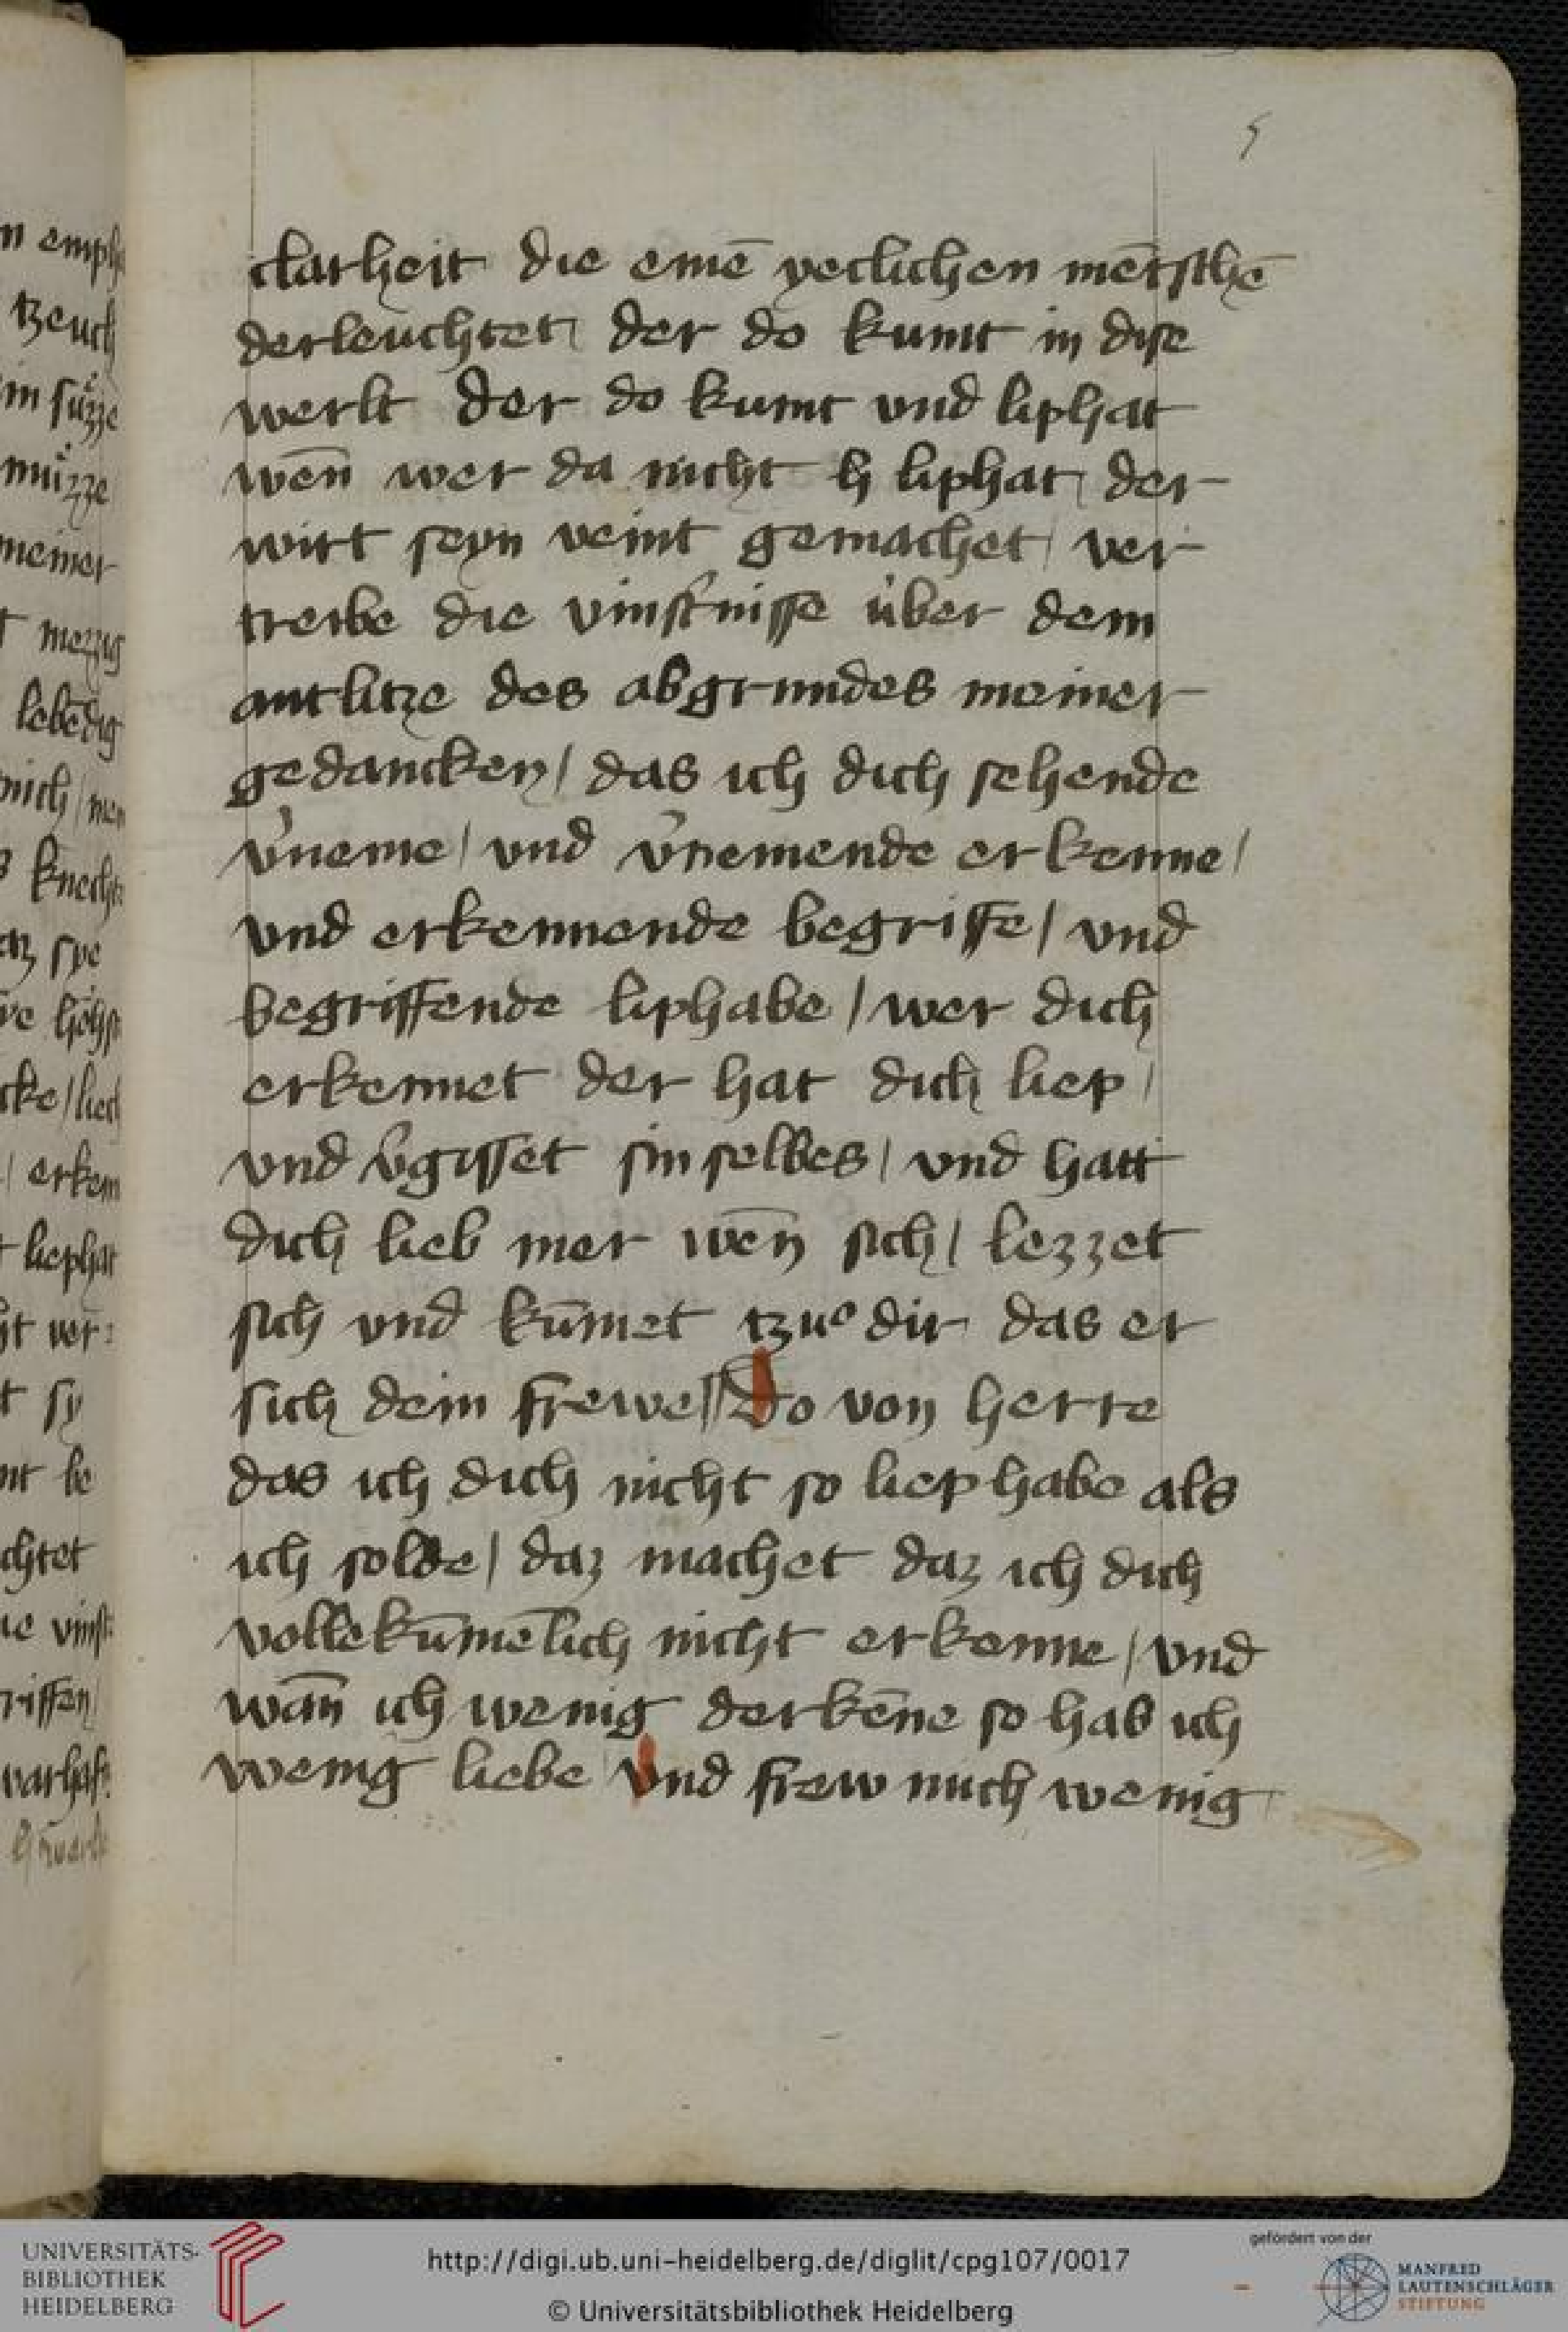 5
clarheit die eine᷑ yeclichen me᷑tsche᷑
derleuchtet der do kumt in dise
werlt der do kumt vnd liphat
wen̄ wer da nicht h liphat der
wirt seyn veint gemachet / ver
treibe die vinst'nisse u᷑ber dem
antlitze des abgrundes meiner
gedancken / das ich dich sehende
v'neme / vnd v'nemende erkenne /
vnd erkennende begriffe / vnd
begriffende liphabe / wer dich
erkennet der hat dich liep /
vnd v'gisset sin selbes / vnd hatt
dich lieb mer wen̄ sich / lezzet
sich vnd ku̅met tzuͦ dir das er
sich dein frewe // Do von herre
das ich dich nicht so liep habe als
ich solde / daz machet daz ich dich
volleku̅me̅lich nicht erkenne / vnd
wan̄ ich wenig derke̅ne so hab ich
wenig liebe Vnd frew mich wenig
n emph
tzeuch
in suͤzze
muͤzze
meiner
t mezzig
lebe̅dig
mich / men
knecht
atz spe
cke / liech
/ erken
liephat
t sy
nt be
chtet
ie vinst
riffen /
warhaf
UNIVERSITÄTS-
BIBLIOTHEK
HEIDELBERG
http://digi.ub.uni-heidelberg.de/diglit/cpg107/0017
© Universitätsbibliothek Heidelberg
gefördert von der
MANFRED
LAUTENSCHLÄGER
STIFTUNG